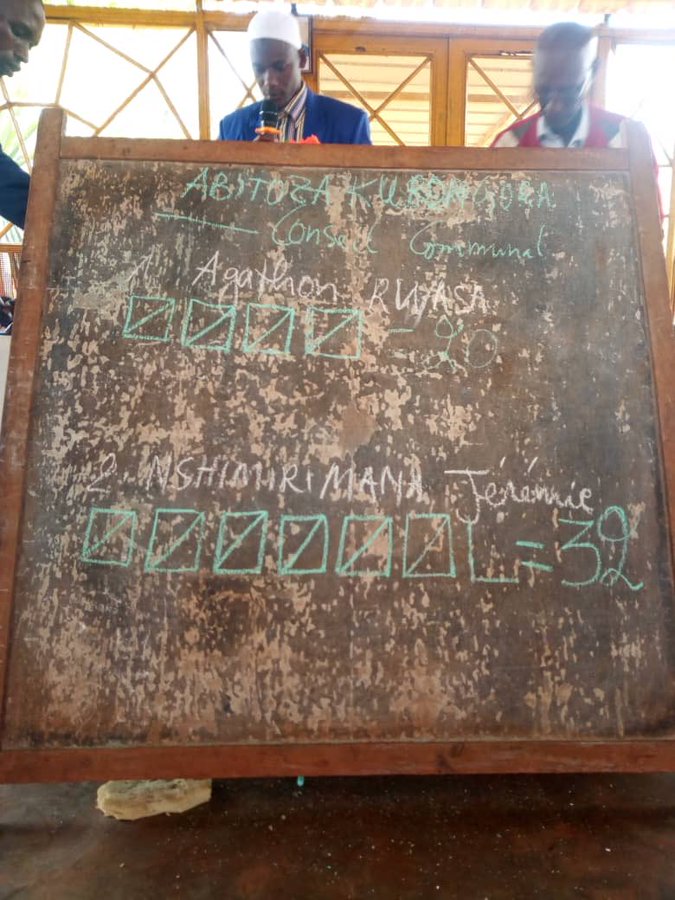 ABITOZA KURONGORA
Conseil Communal
1 Agathon RWASA
= 20
2 NSHIMIRIMANA Jérémie
= 32